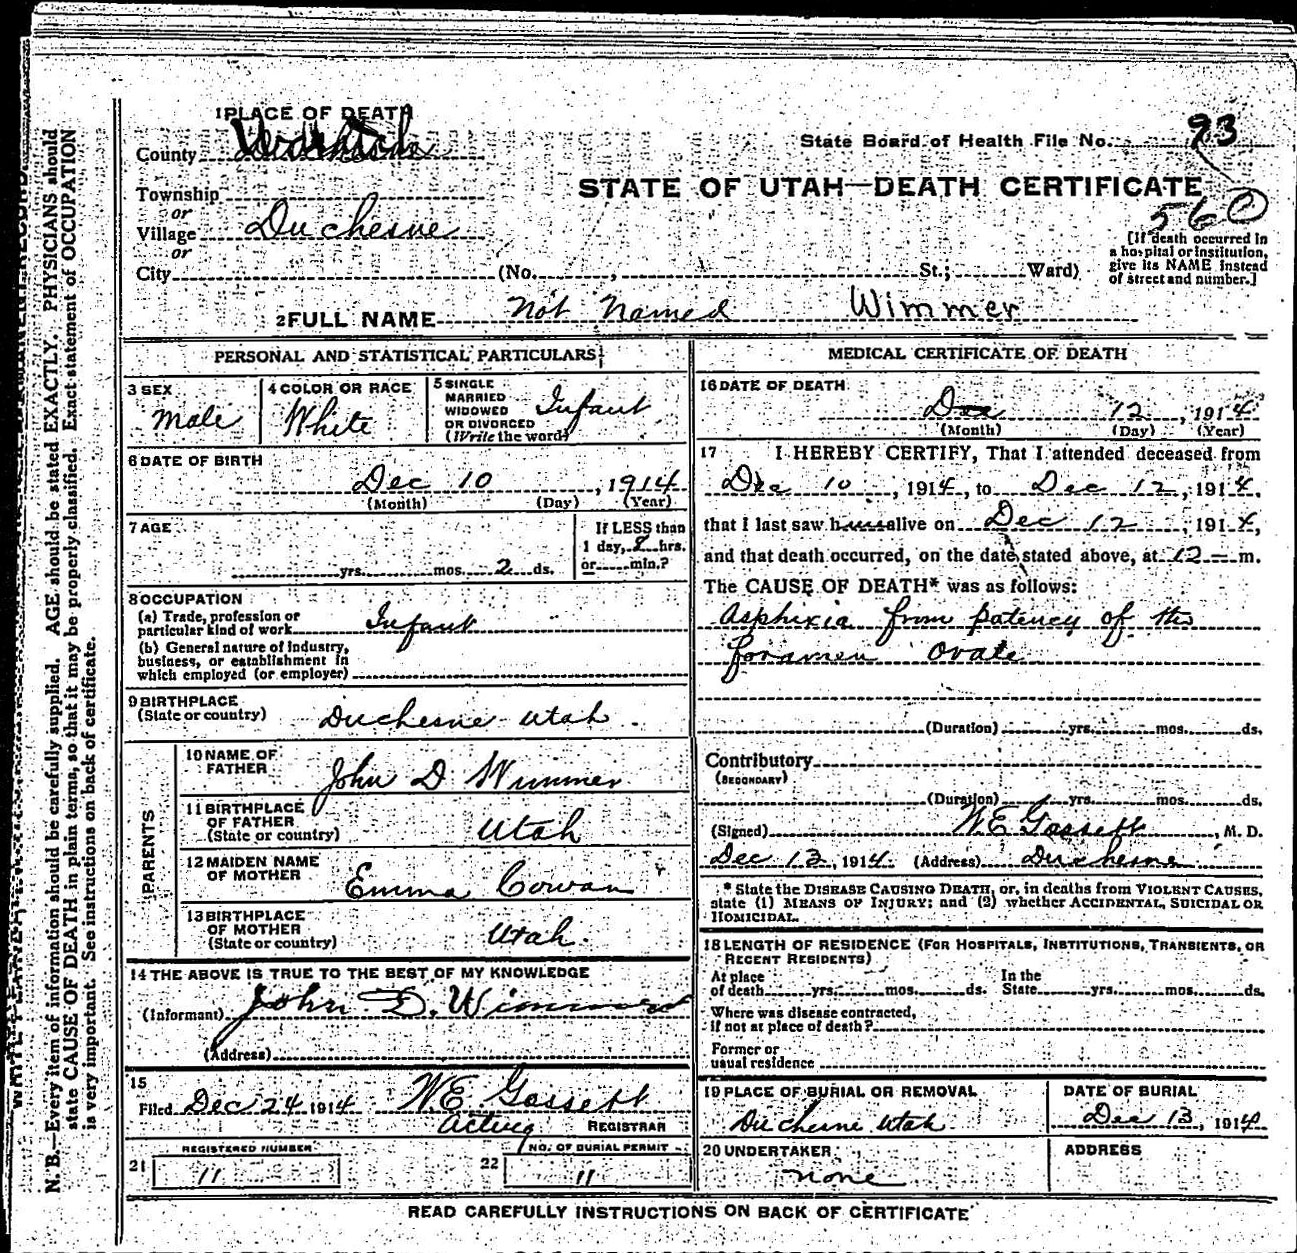 1 PLACE OF DEATH
County Wasatch
State Board of Health File No. 93
STATE OF UTAH—DEATH CERTIFICATE
560
Township
or
Village Duchesne
or
City (No. , St.; Ward)
[If death occurred in
a hospital or institution,
give its NAME instead
of street and number.]
2 FULL NAME Not Named Wimmer
PERSONAL AND STATISTICAL PARTICULARS
3 SEX
Male
4 COLOR OR RACE
White
5 SINGLE
MARRIED
WIDOWED
OR DIVORCED
(Write the word)
Infant
6 DATE OF BIRTH
Dec 10, 1914
(Month) (Day) (Year)
7 AGE
yrs. mos. 2 ds.
If LESS than
1 day, hrs.
or min.?
8 OCCUPATION
(a) Trade, profession or
particular kind of work Infant
(b) General nature of Industry,
business, or establishment in
which employed (or employer)
9 BIRTHPLACE
(State or country) Duchesne Utah.
PARENTS
10 NAME OF
FATHER John D Wimmer
11 BIRTHPLACE
OF FATHER
(State or country) Utah
12 MAIDEN NAME
OF MOTHER Emma Cowan
13 BIRTHPLACE
OF MOTHER
(State or country) Utah.
14 THE ABOVE IS TRUE TO THE BEST OF MY KNOWLEDGE
(Informant) John D. Wimmer
(Address)
15
Filed Dec 24 1914 W.E Gossett
Acting REGISTRAR
REGISTERED NUMBER
21 11
NO. OF BURIAL PERMIT
22 11
MEDICAL CERTIFICATE OF DEATH
16 DATE OF DEATH
Dec 12, 1914
(Month) (Day) (Year)
17 I HEREBY CERTIFY, That I attended deceased from
Dec 10, 1914, to Dec 12, 1914,
that I last saw him alive on Dec 12, 1914,
and that death occurred, on the date stated above, at 12 m.
The CAUSE OF DEATH* was as follows:
Asphixia from patency of the
foramen ovale
(Duration) yrs. mos. ds.
Contributory
(SECONDARY)
(Duration) yrs. mos. ds.
(Signed) W.E Gossett, M. D.
Dec 13, 1914. (Address) Duchesne
* State the DISEASE CAUSING DEATH, or, in deaths from VIOLENT CAUSES,
state (1) MEANS OF INJURY; and (2) whether ACCIDENTAL, SUICIDAL OR
HOMICIDAL.
18 LENGTH OF RESIDENCE (FOR HOSPITALS, INSTITUTIONS, TRANSIENTS, OR
RECENT RESIDENTS)
At place
of death yrs. mos. ds.
In the
State yrs. mos. ds.
Where was disease contracted,
if not at place of death?
Former or
usual residence
19 PLACE OF BURIAL OR REMOVAL
Duchesne Utah.
DATE OF BURIAL
Dec 13, 1914
20 UNDERTAKER
none
ADDRESS
READ CAREFULLY INSTRUCTIONS ON BACK OF CERTIFICATE
N. B.—Every item of information should be carefully supplied. AGE should be stated EXACTLY. PHYSICIANS should
state CAUSE OF DEATH in plain terms, so that it may be properly classified. Exact statement of OCCUPATION
is very important. See instructions on back of certificate.